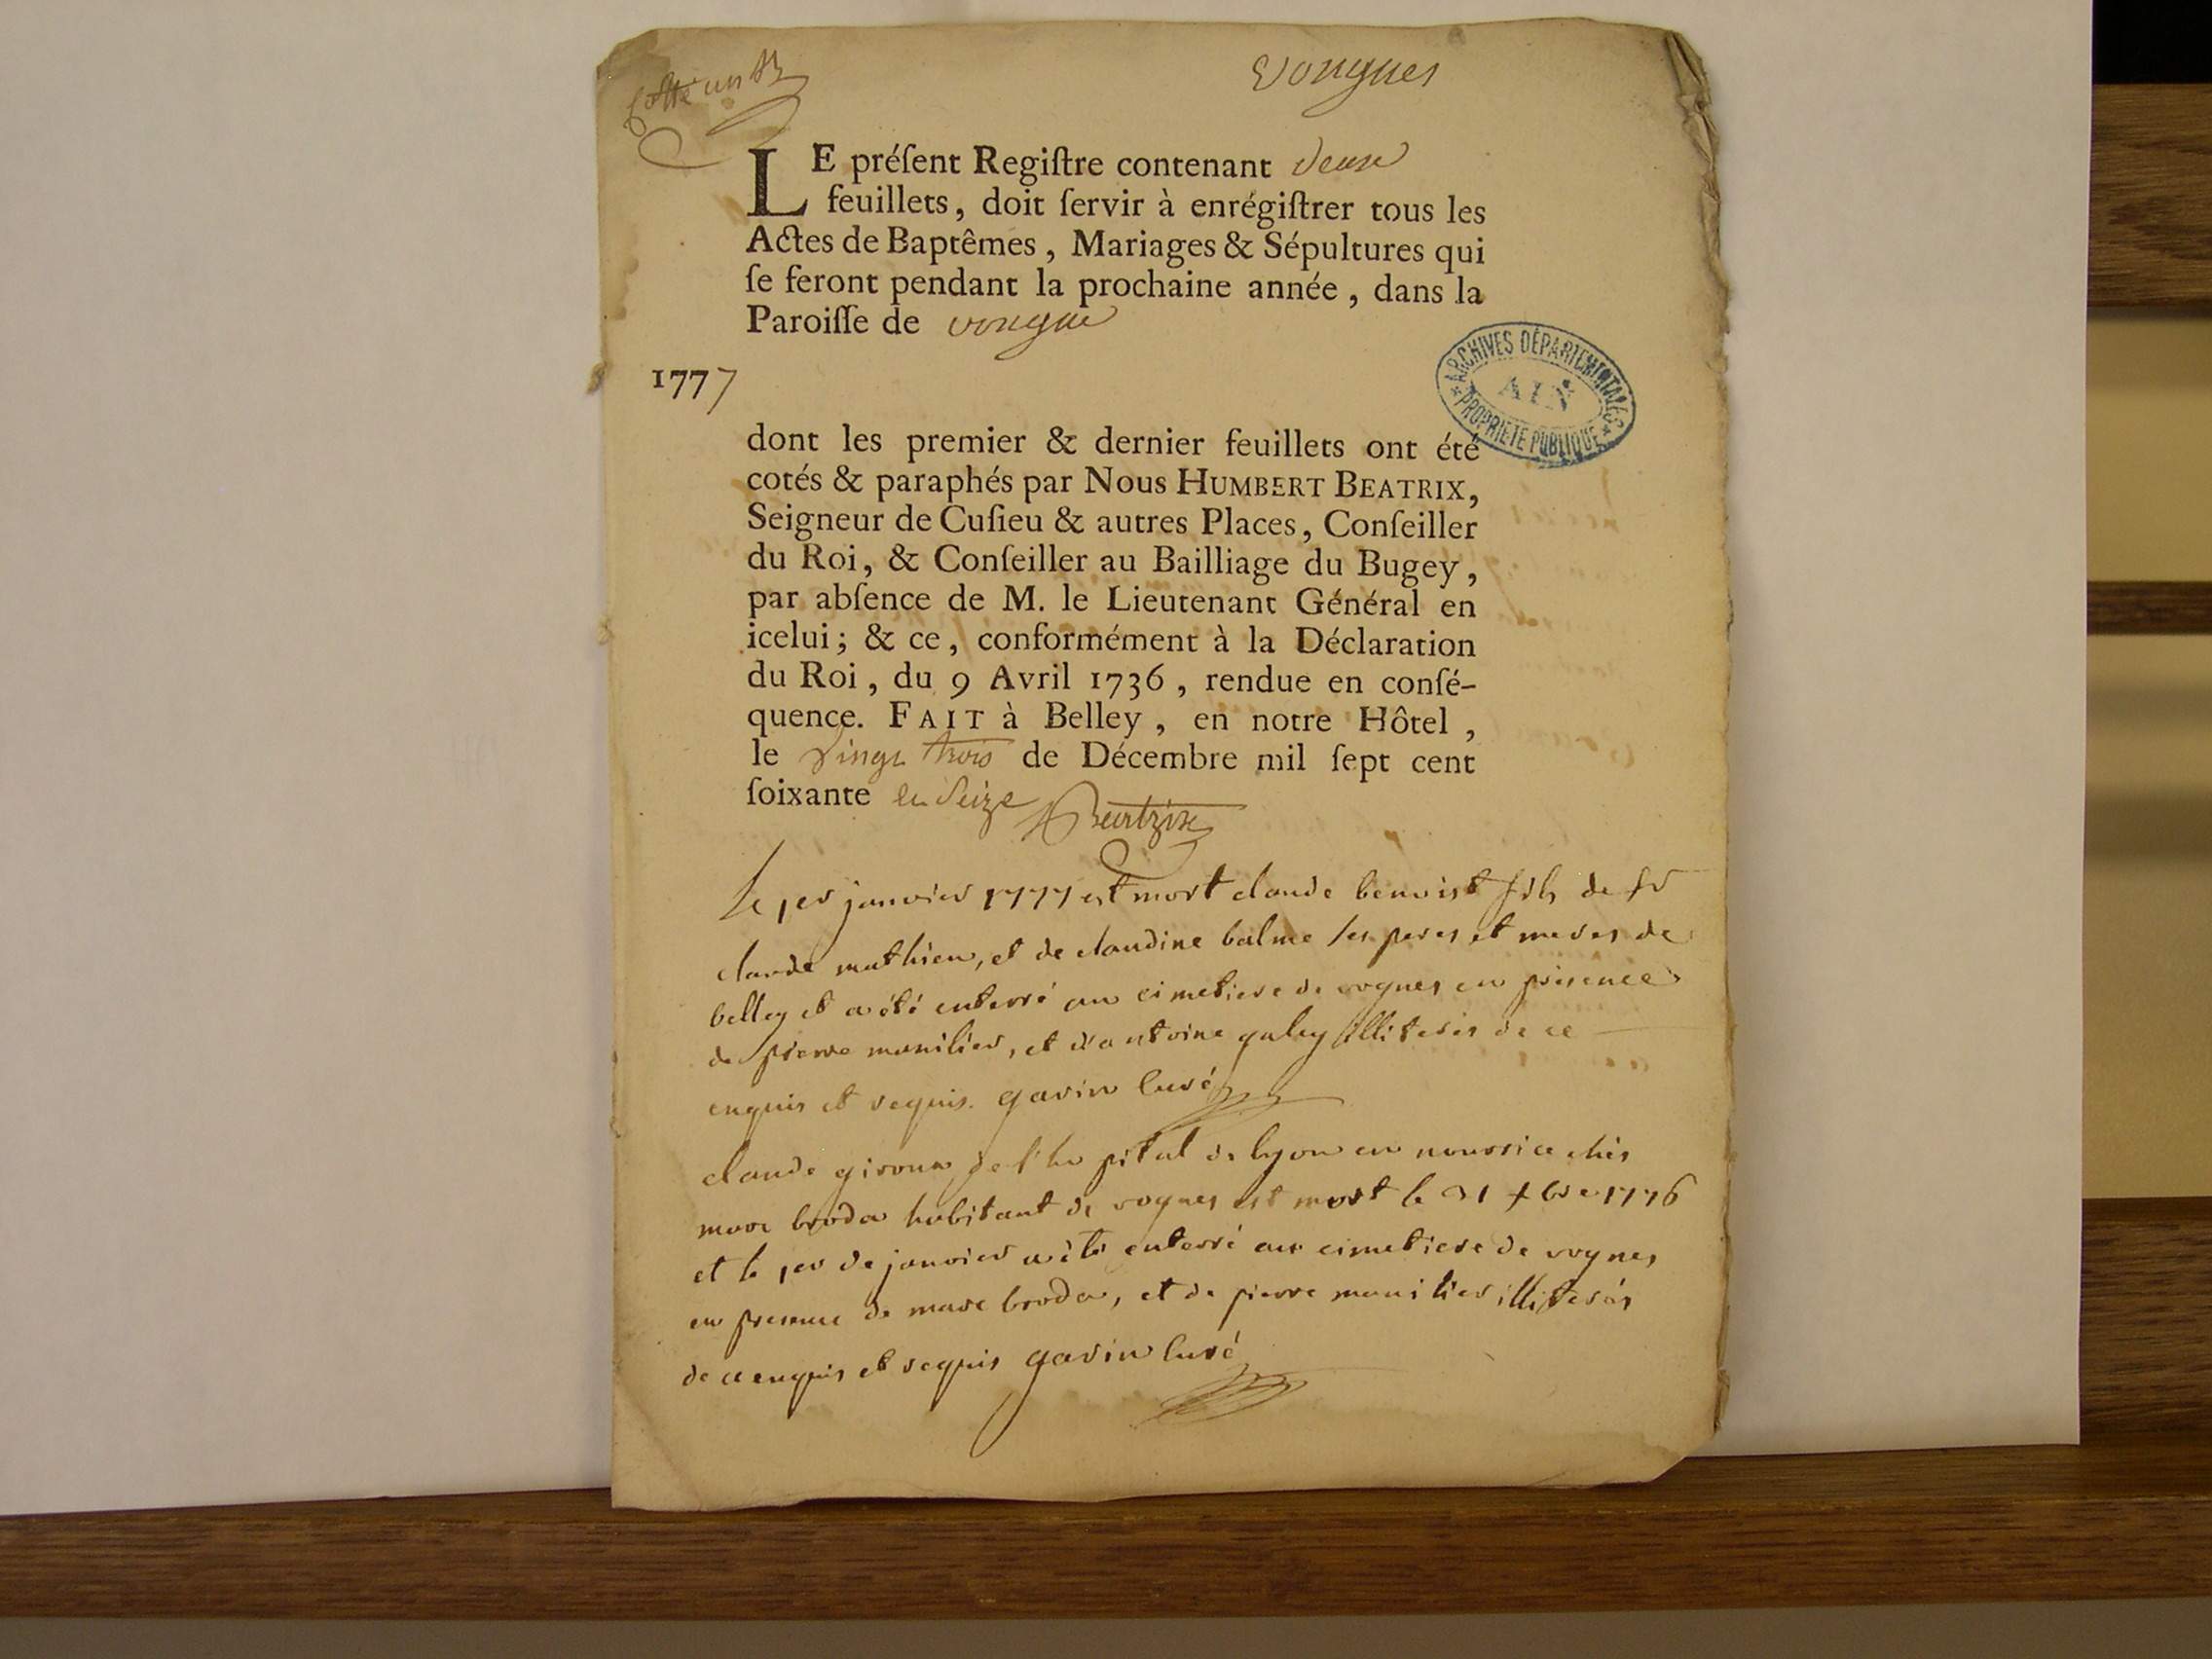 Cotté un
Vongnes
LE préſent Regiſtre contenant deux
feuillets, doit ſervir à enrégiſtrer tous les
Actes de Baptêmes, Mariages & Sépultures qui
ſe feront pendant la prochaine année, dans la
Paroiſſe de vongne
1777
ARCHIVES DÉPARTEMENTALES
AIN
PROPRIÉTÉ PUBLIQUE
dont les premier & dernier feuillets ont été
cotés & paraphés par Nous HUMBERT BEATRIX,
Seigneur de Cuſieu & autres Places, Conſeiller
du Roi, & Conſeiller au Bailliage du Bugey,
par abſence de M. le Lieutenant Général en
icelui; & ce, conformément à la Déclaration
du Roi, du 9 Avril 1736, rendue en conſé-
quence. FAIT à Belley, en notre Hôtel,
le vingt trois de Décembre mil ſept cent
ſoixante et Seize Beatrix
le 1er janvier 1777 est mort claude benoist fils de
claude mathieu, et de claudine balme ses peres et meres de
belley et a été enterré au cimetiere de vognes en présence
de pierre manilier, et d'antoine galey illiterés de ce
enquis et requis. gavin Curé
claude giroux de l'hopital de lyon en nourrice chés
marc broda habitant de vognes est mort le 31 xbre 1776
et le 1er de janvier a été enterré au cimetiere de vognes
en presence de marc broda, et de pierre manilier illiterés
de ce enquis et requis gavin Curé